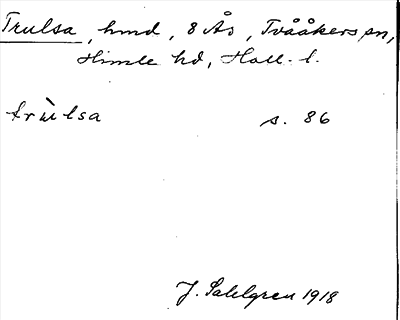 Trulsa, hmd, 8 Ås, Tvååkers sn,
Himle hd, Hall. l.
trùlsa s. 86
J. Sahlgren 1918